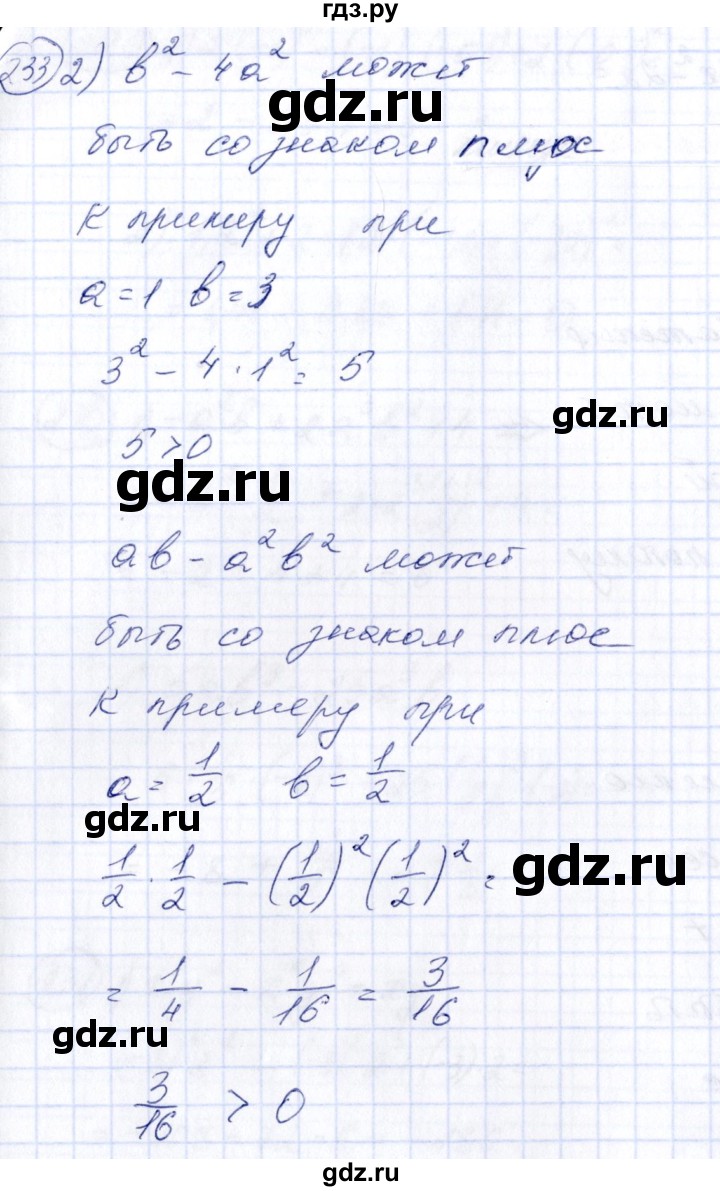 гдз.ру
233 2) b² - 4a² может
быть со знаком плюс
К примеру при
a = 1 b = 3
3² - 4 · 1² = 5
gdz.ru
5 > 0
gdz.ru
ab - a²b² может
быть со знаком плюс
К примеру при
a = 1/2 b = 1/2
gdz.ru
1/2 · 1/2 - (1/2)² (1/2)² =
gdz.ru
= 1/4 - 1/16 = 3/16
gdz.ru
3/16 > 0
gdz.ru